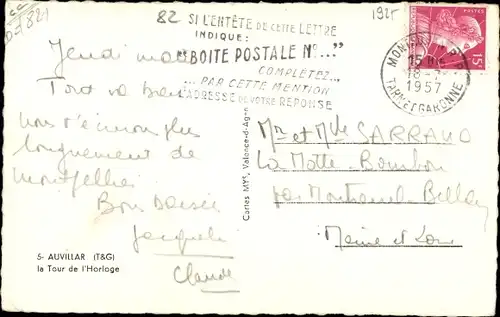 D2 82-1
82
1925
SI L'ENTÊTE DE CETTE LETTRE
INDIQUE:
"BOITE POSTALE N°..."
COMPLETEZ...
...PAR CETTE MENTION
L'ADRESSE DE VOTRE REPONSE
15F
POSTES
18-7
1957
TARN ET GARONNE
Jeudi
Tout va bien
vous écrirons plus
longuement de
Montpellier
Bons baisers
Jacquele
Claude
Mr et Mde SARRAUD
La Motte-Bourbon
par Montreuil-Bellay
Maine et Loire
Cartes MYS, Valence-d'Agen
5- AUVILLAR (T&G)
la Tour de l'Horloge